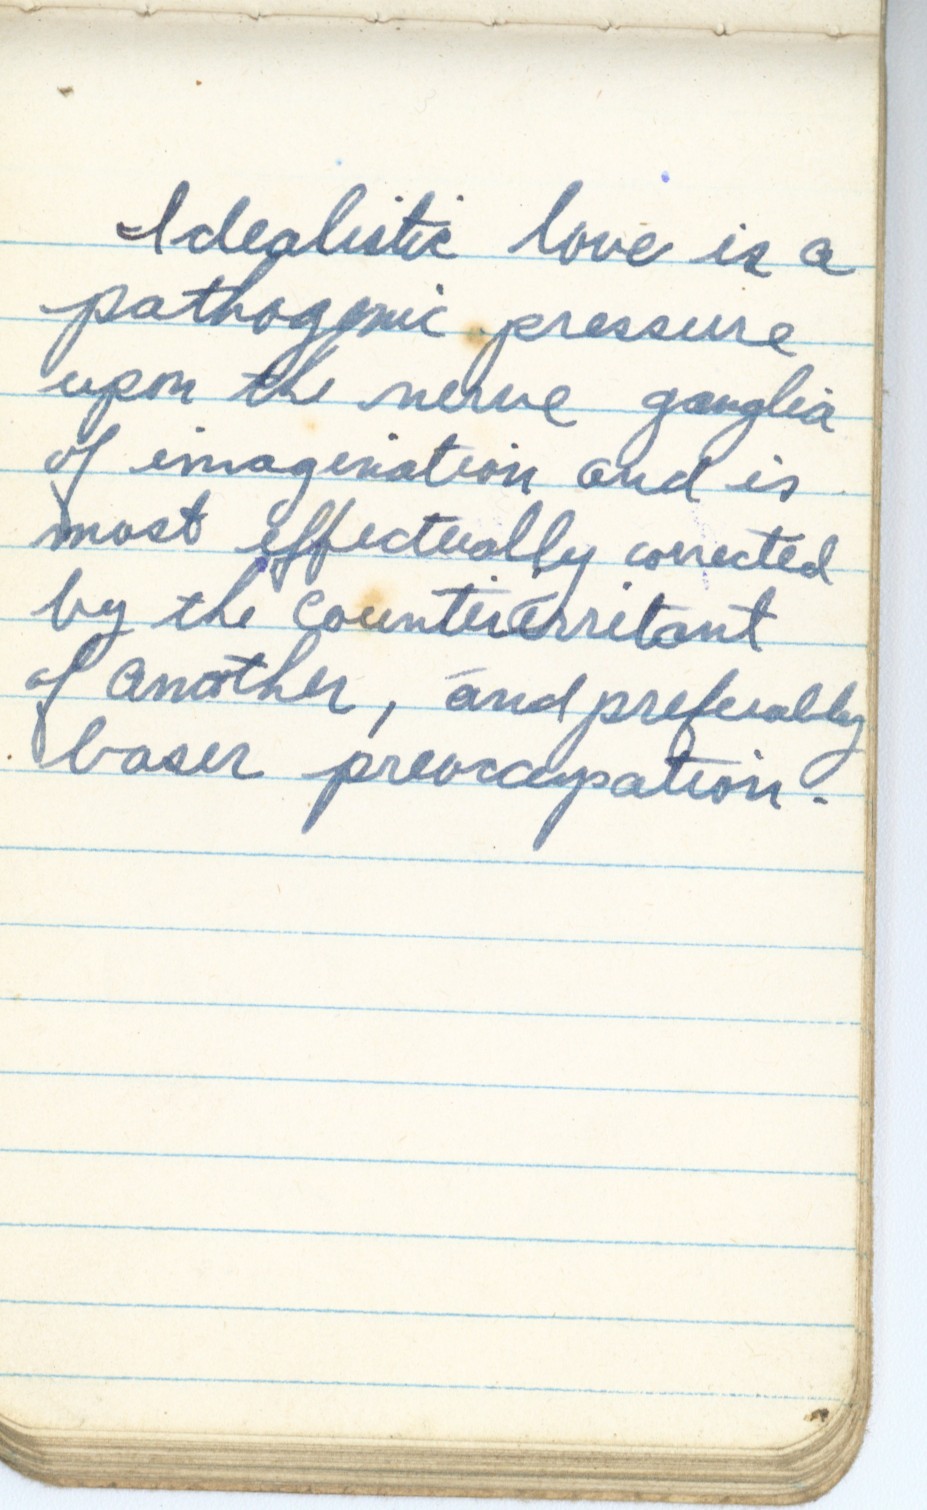 Idealistic love is a
pathogenic pressure
upon the nerve ganglia
of imagination and is
most effectually corrected
by the counterirritant
of another, and preferably
baser preoccupation.